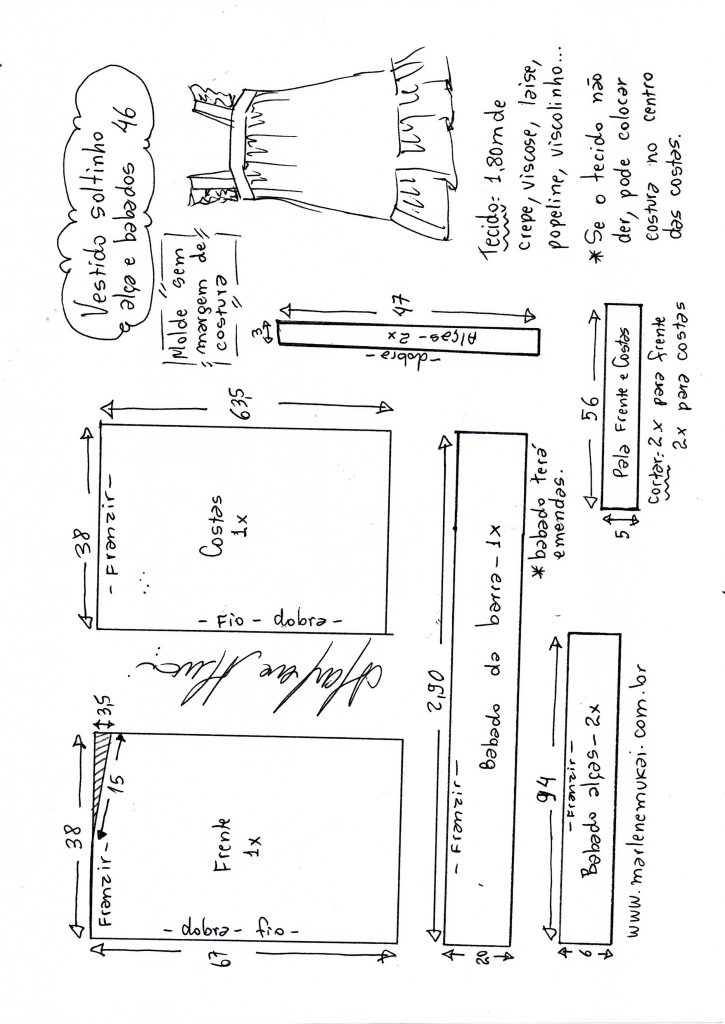 Vestido soltinho
e alça e babados 46
"Molde sem
margem de
costura"
Tecido: 1,80m de
crepe, viscose, laise,
popeline, viscolinho...
* Se o tecido não
der, pode colocar
costura no centro
das costas.
38
3,5
15
- Franzir -
Frente
1x
- fio - dobra -
67
38
- Franzir -
Costas
1x
- Fio - dobra -
63,5
3
- dobra -
Alças - 2x
47
2,60
- Franzir -
Babado da barra - 1x
20
* babado terá
emendas.
94
- Franzir -
Babado alças - 2x
6
56
Pala Frente e Costas
5
Cortar: 2x para frente
2x para costas
www.marlenemukai.com.br
Marlene Mukai